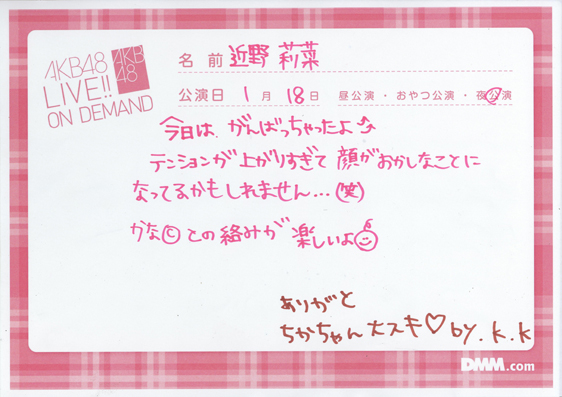 AKB48
LIVE!!
ON DEMAND
AKB
48
名 前 近野 莉菜
公演日 1月 18日 昼公演・おやつ公演・夜公演
今日は、がんばっちゃったよ
テンションが上がりすぎて 顔がおかしなことに
なってるかもしれません…(笑)
かなⓒとの絡みが 楽しいよ
ありがと
ちかちゃん大スキ♡ by.k.k
DMM.com